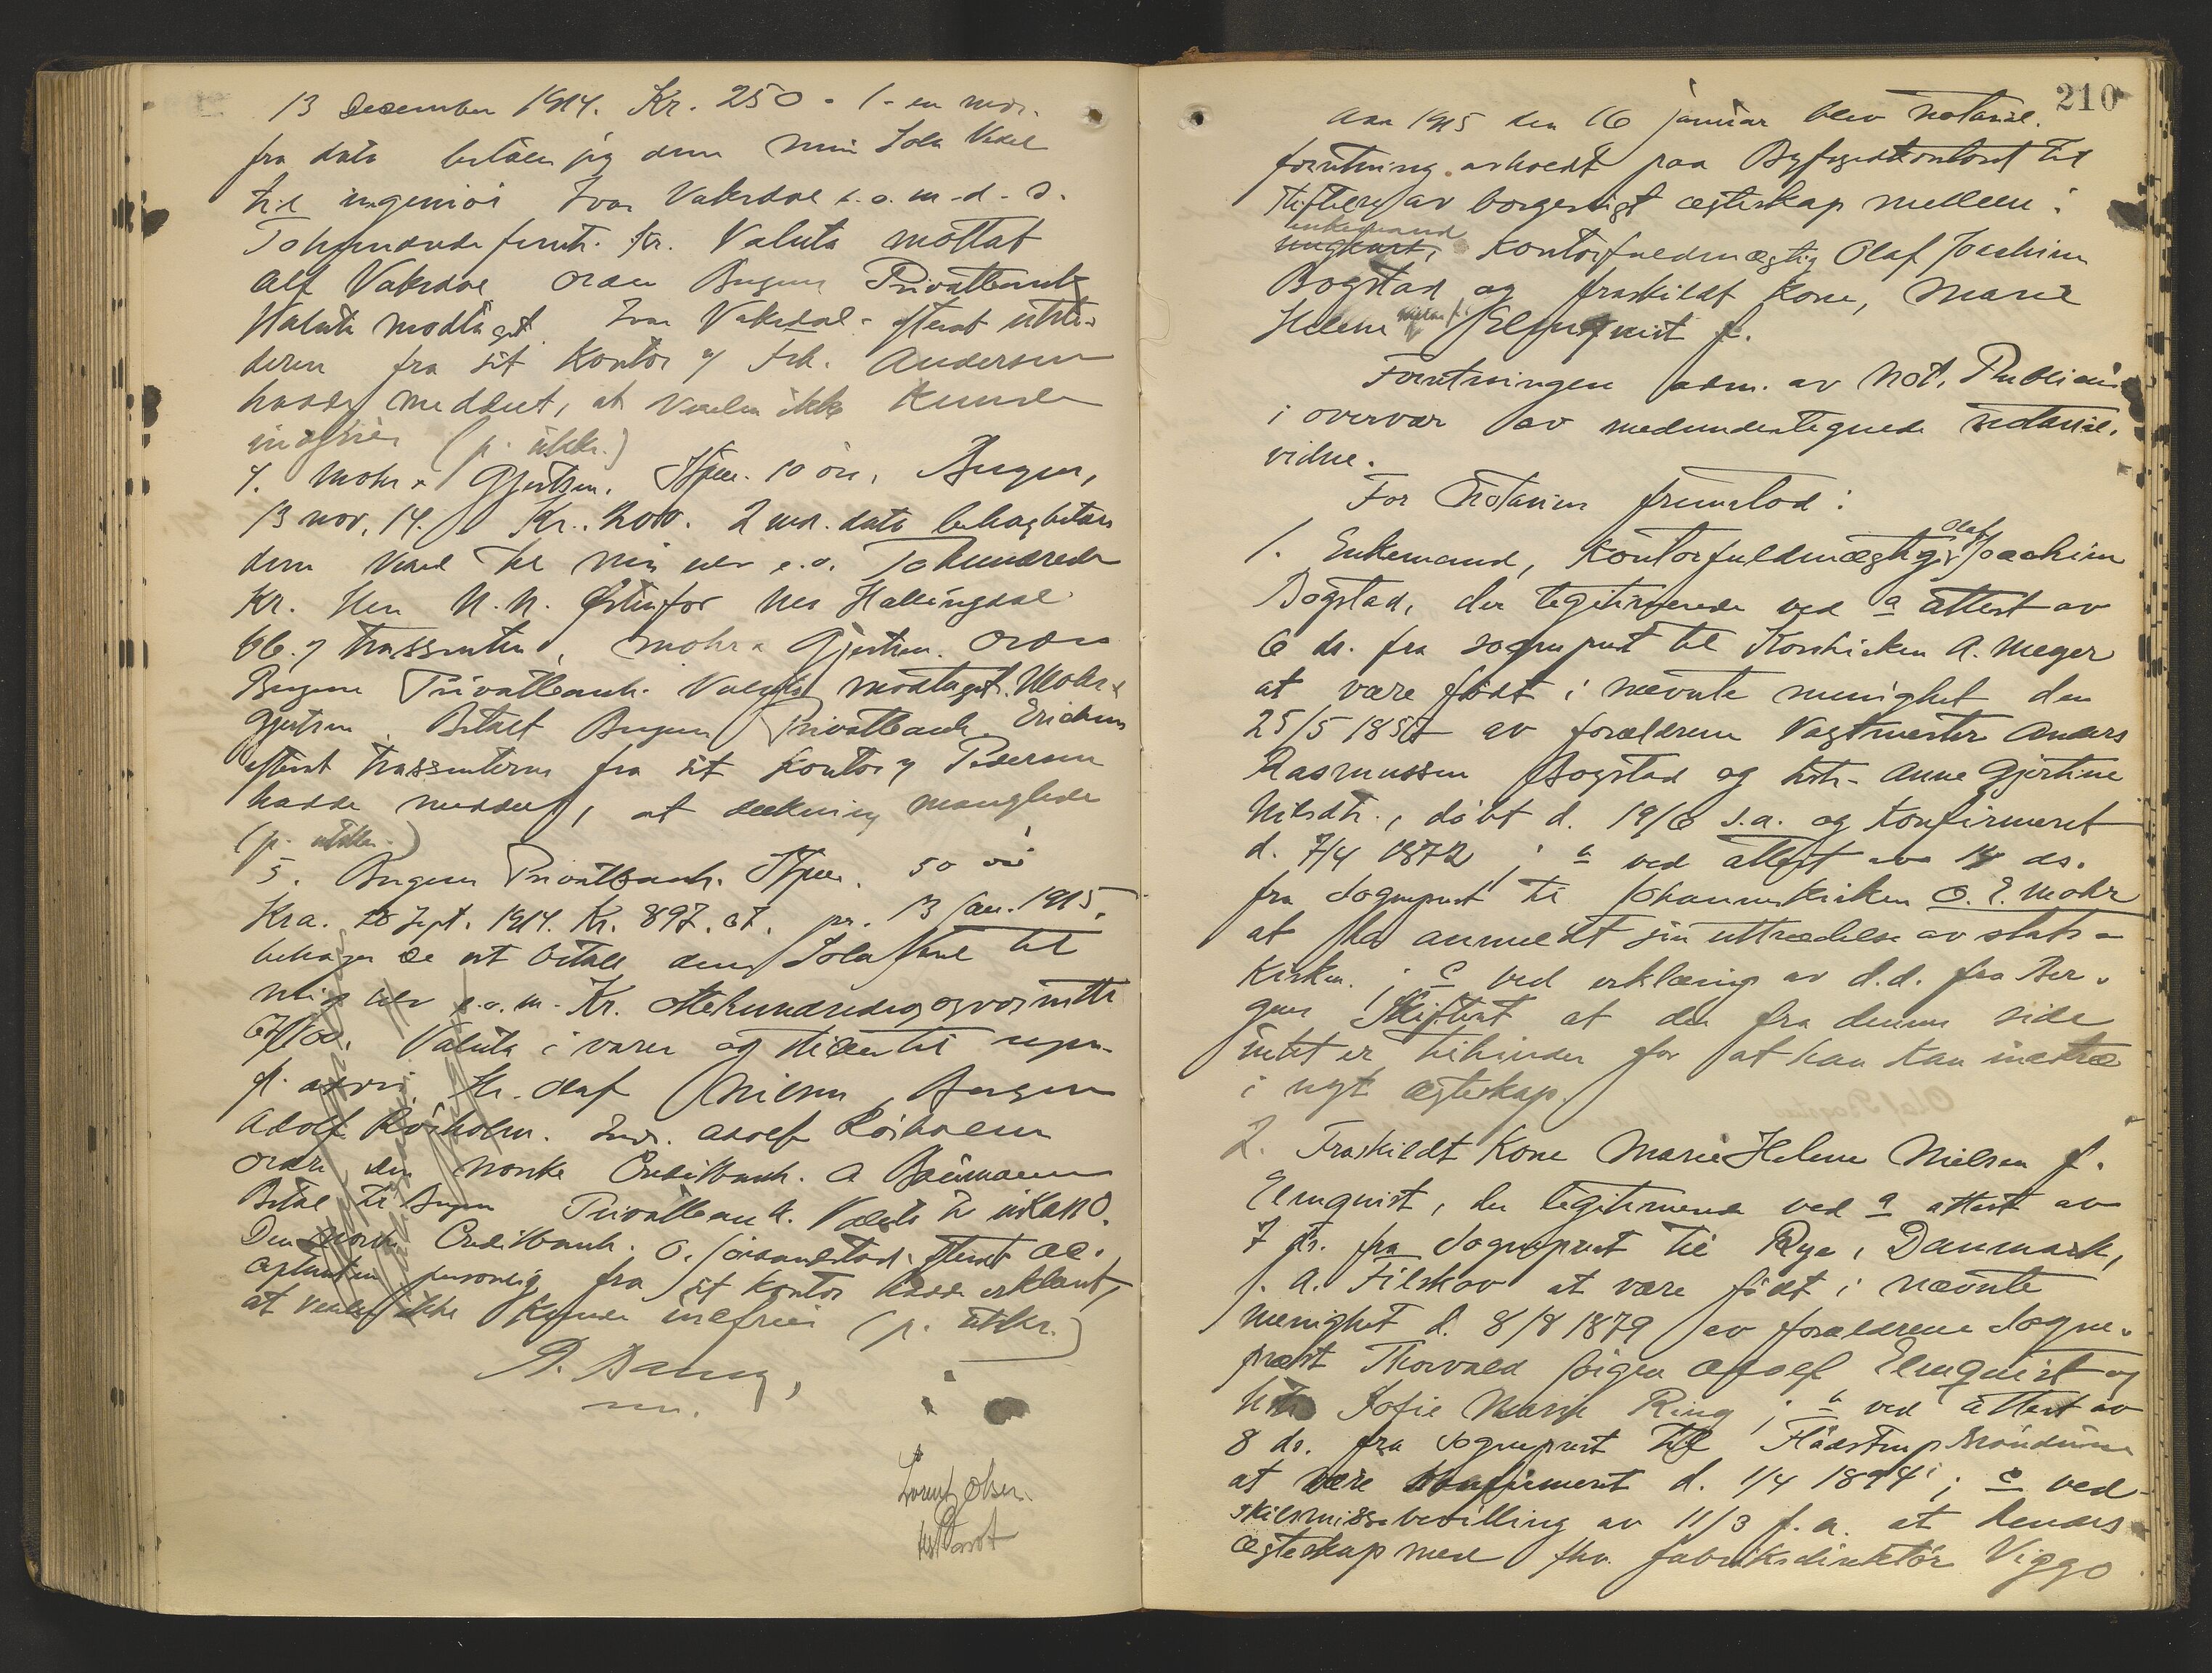 13 December 1914. Kr. 250 - 1 - en mdr.
fra dato betaler jeg denne min Sola Veksel
til ingeniør Ivar Vaksdal e.o. m.d. S.
Tohundrede femti Kr. Valuta mottat
Alf Vaksdal Ordre Bergens Privatbank
Valuta modtaget. Ivar Vaksdal - efterat utste-
deren fra sit Kontor v/ Frk. Andersen
hadde meddelt, at Vekslen ikke Kunde
indfries (p. utkr.)
4. Mohr & Gjertsen. Stpl. 10 øre, Bergen,
13 nov. 14. Kr. 200. 2 md. dato behag betale
denne Veksel til min eller e.o. To hundrede
Kr. Herr N. N. Nes Hallingdal
trassenten, Mohr & Gjertsen. Ordre
Bergens Privatbank. Valuta modtaget. Mohr &
Gjertsen. Betalt Bergens Privatbank Erichsen
efterat trassenterne fra sit Kontor v/ Pedersen
hadde meddelt, at dekning manglede
(p. utkr.)
5. Bergens Privatbank. Stpl. 50 øre
Kra. 28 Sept. 1914. Kr. 897.67. pr. 13 Jan. 1915,
behager De at betale denne Sola Veksel til
mig eller e.o. m. Kr. Ottehundrede og nitti
67/100. Valuta i varer og stilles til regn.
f. avvis. Hr. Olaf Nilsen, Bergen
Adolf Röiholm. End. Adolf Röiholm
ordre den norske Creditbank. A Baumann
Betal til Bergens Privatbank. Valuta til inkasso.
Den Norske Creditbank. efterat ac-
ceptanten personlig fra sit Kontor hadde erklært,
at Vekslen ikke Kunde indfries (p. utkr.)
Lorentz Olsen.
210
Aar 1915 den 16 januar blev notarial-
forretning avholdt paa Byfogedkontoret til
stiftelse av borgerligt egteskap mellem:
enkemand
ungkarl, Kontorfuldmægtig Olaf Joachim
Bogstad og fraskildt Kone, Marie
Helene Nielsen f. Elmquist f.
Forretningen adm. av Not. Publicus
i overvær av medundertegnede notarial-
vidne.
For Notarius fremstod:
1. Enkemand, Kontorfuldmægtig Olaf Joachim
Bogstad, der legitimerede ved a attest av
6 ds. fra sogneprest til Korskirken A. Meyer
at være født i nævnte menighet den
25/5 1857 av forældrene Vagtmester Anders
Rasmussen Bogstad og hstr. Anne Gjertine
Nilsdtr., døbt d. 19/6 s.a. og Konfirmeret
d. 7/4 1872; b ved attest av 14 ds.
fra Sogneprest til Johanneskirken O. E. Mohr
at ha anmeldt sin uttrædelse av stats-
kirken; c ved erklæring av d.d. fra Ber-
gens Skifteret at der fra denne side
intet er tilhinder for at han kan indtræ
i nyt egteskap.
2. Fraskildt Kone Marie Helene Nielsen f.
Elmquist, der legitimerede ved a attest av
7 ds. fra Sogneprest til Rye, Danmark,
J. A. Filskov at være født i nævnte
menighet d. 8/8 1879 av forældrene Sogne-
prest Thorvald Jörgen Adolf Elmquist og
hstr. Sofie Marie Ring; b ved attest av
8 ds. fra Sogneprest til
at være Konfirmeret d. 1/4 1894; c ved
skilsmissebevilling av 11/3 f.a. at hendes
egteskap med fhv. fabrikdirektör Viggo